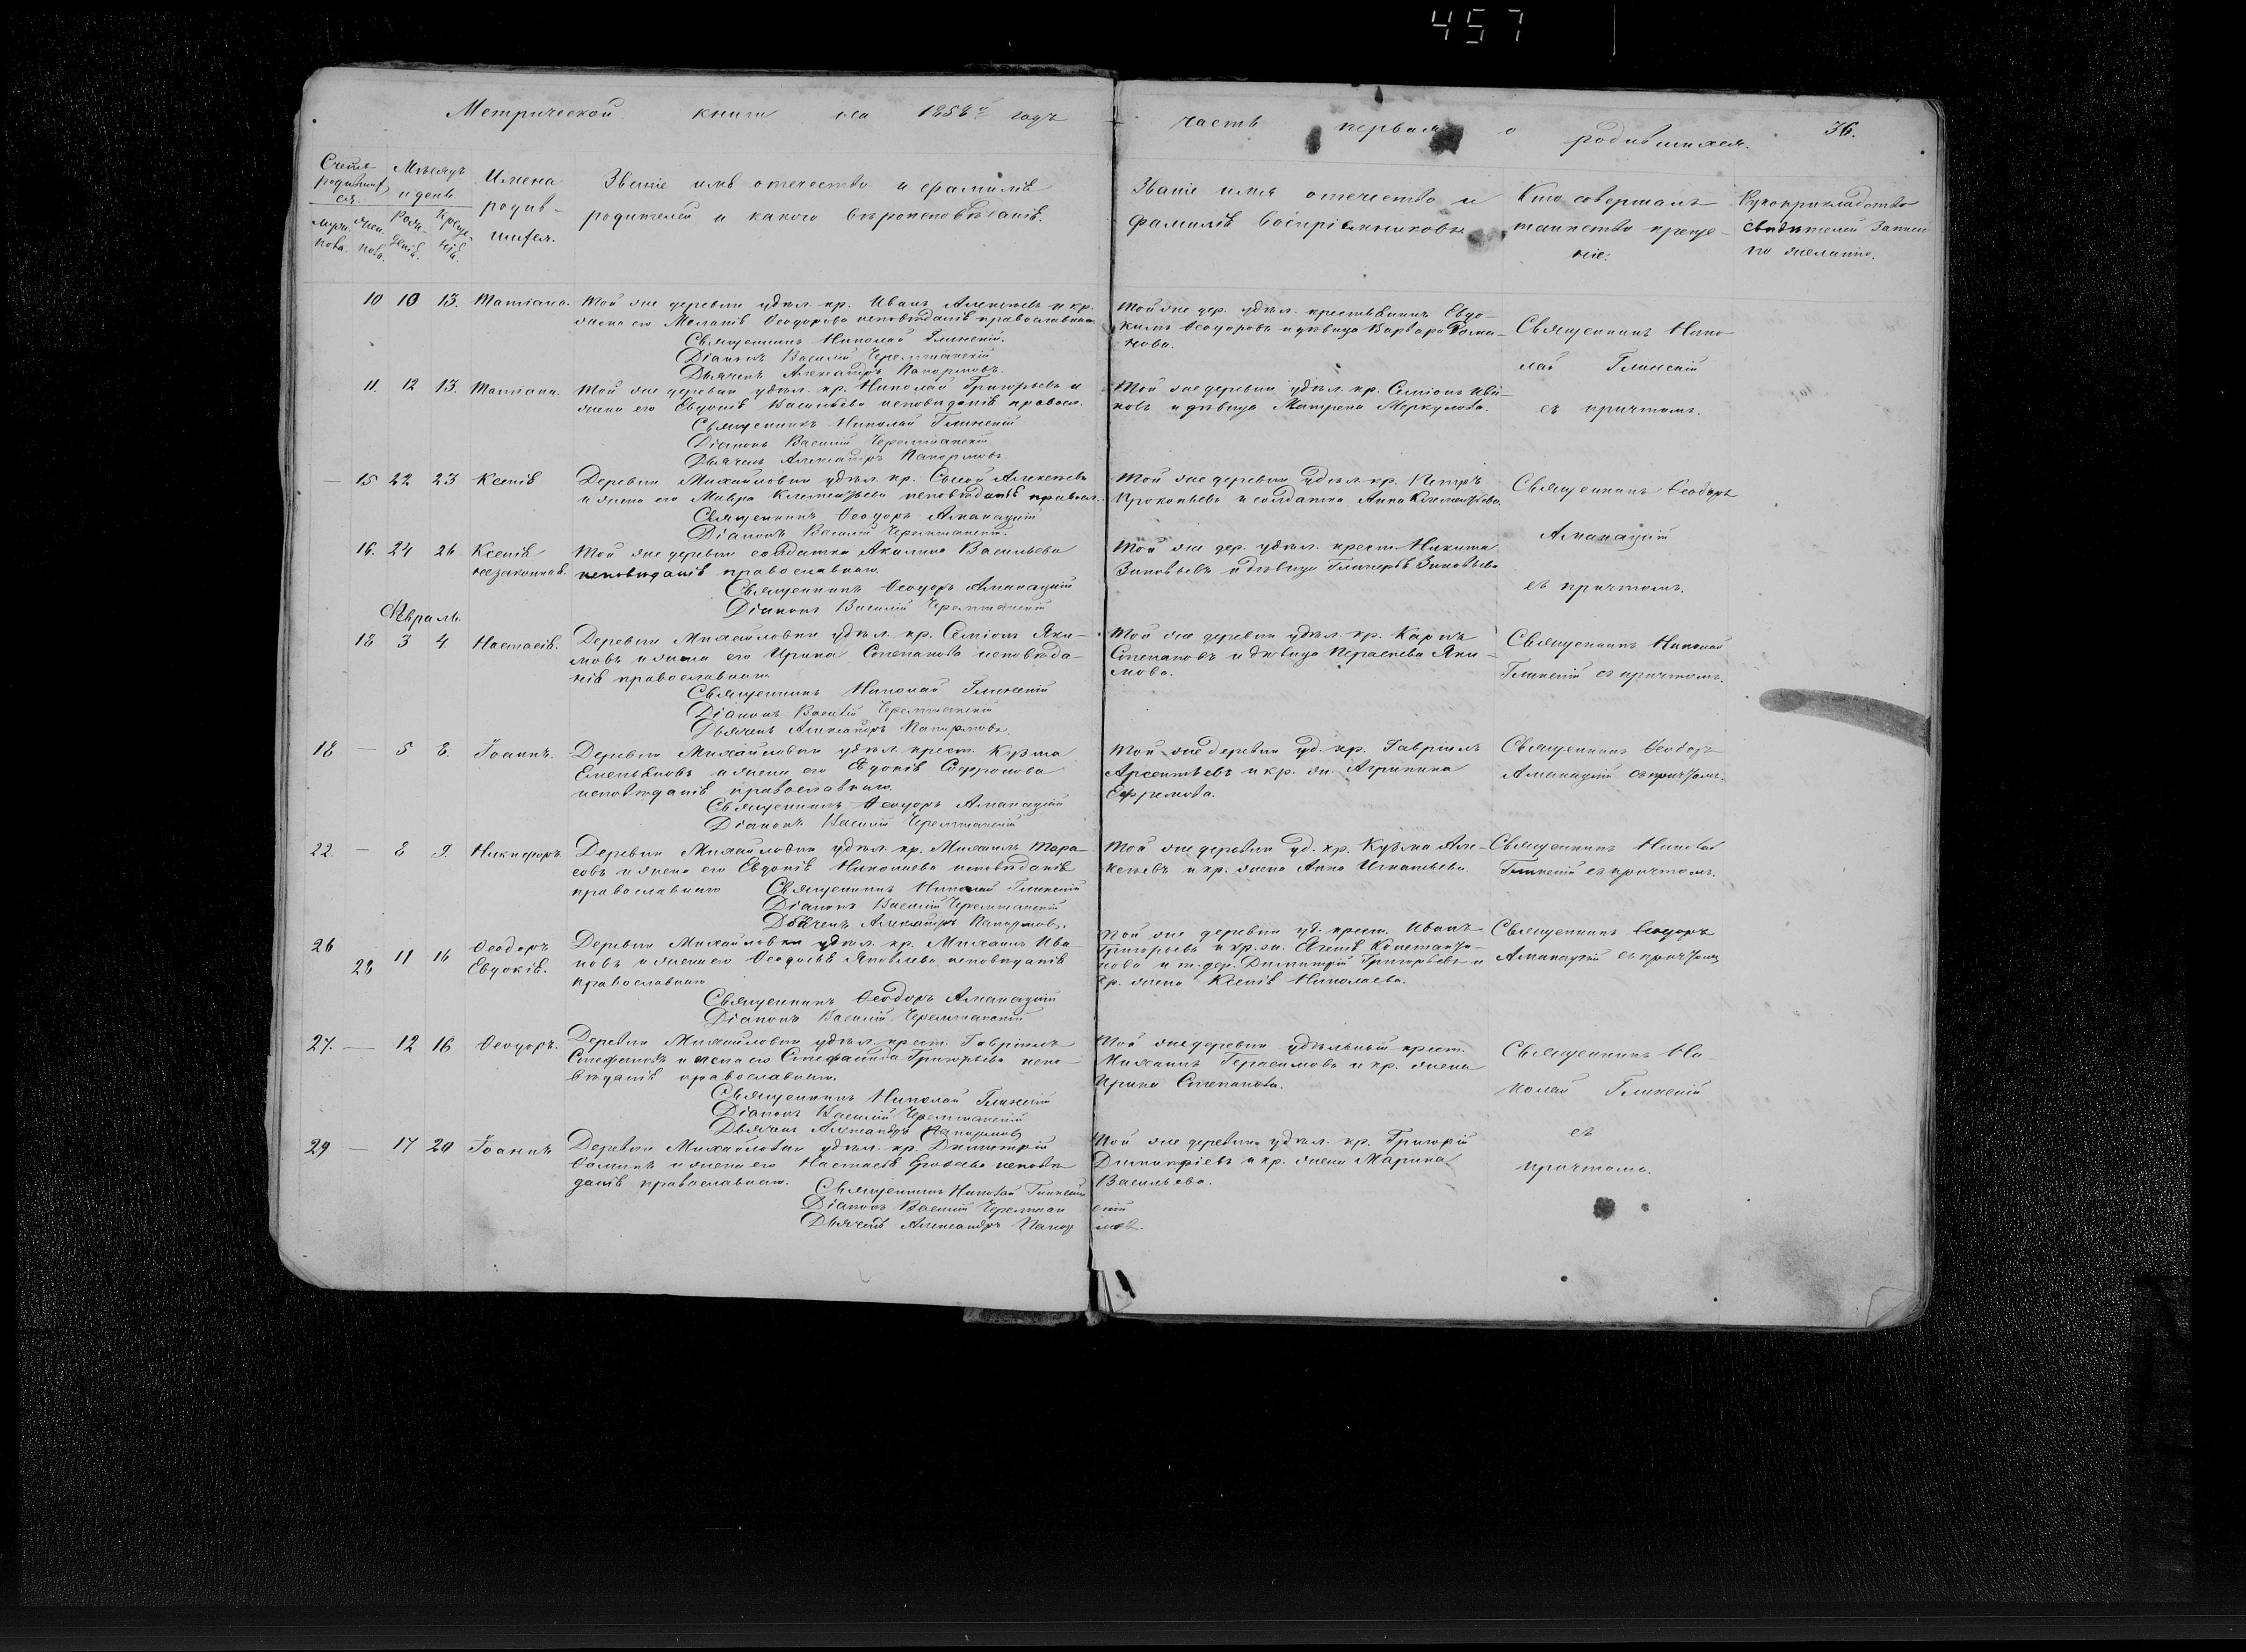 457
Метрической книги на 1858й годъ
часть первая о родившихся. 36.
Счетъ родившихся. Мѣсяцъ и день. Имена родив-шихся. Званіе имя отечество и фамилія родителей и какого вѣроисповѣданія.
мужеска пола. женска пола. Рожденія. Крещенія.
Званіе имя отечество и фамилія воспріемниковъ
Кто совершалъ таинство креще-ніе.
Рукоприкладство свидѣтелей записи по желанію.
10 10 13. Татіана. Той же деревни удѣл. кр. Иванъ Алексѣевъ и кр.
жена его Меланія Ѳеодорова исповѣданія православнаго
Священникъ Николай Глинскій.
Діаконъ Василій Черемшанскій
Дьячекъ Александръ
Той же дер. удѣл. крестьянинъ Евдо-
кимъ Ѳеодоровъ и дѣвица Варвара Рома-
нова.
Священникъ Нико-
лай Глинскій
съ причтомъ.
11. 12 13. Татіана. Той же деревни удѣл. кр. Николай Григорьевъ и
жена его Евдокія Васильева исповѣданія правосл.
Священникъ Николай Глинскій
Діаконъ Василій Черемшанскій
Дьячекъ Александръ
Той же деревни удѣл. кр. Симеонъ Ива-
новъ и дѣвица Матрена Меркулова.
— 15 22 23 Ксенія Деревни Михайловки удѣл. кр. Сысой Алексѣевъ
и жена его Мавра Климентьева исповѣданія правосл.
Священникъ Ѳеодоръ Алманацкій
Діаконъ Василій Черемшанскій.
Той же деревни удѣл. кр. Петръ
Прокопьевъ и солдатка Анна Климентьева.
Священникъ Ѳеодоръ
Алманацкій
съ причтомъ.
16. 24 26 Ксенія Той же деревни солдатка Акилина Васильева
незаконная. исповѣданія православнаго.
Священникъ Ѳеодоръ Алманацкій
Діаконъ Василій Черемшанскій
Той же дер. удѣл. крест. Никита
Зиновьевъ и дѣвица Гликерія Зиновьева
Февраль.
18 3 4. Настасія. Деревни Михайловки удѣл. кр. Симеонъ Яки-
мовъ и жена его Ирина Степанова исповѣда-
нія православнаго.
Священникъ Николай Глинскій
Діаконъ Василій Черемшанскій
Дьячекъ Александръ
Той же деревни удѣл. кр. Карпъ
Степановъ и дѣвица Параскева Яки-
мова.
Священникъ Николай
Глинскій съ причтомъ.
18 — 5 8. Іоаннъ. Деревни Михайловки удѣл. крест. Кузма
Емельяновъ и жена его Евдокія Софронова
исповѣданія православнаго.
Священникъ Ѳеодоръ Алманацкій
Діаконъ Василій Черемшанскій
Той же деревни уд. кр. Гавріилъ
Арсентьевъ и кр. ж. Агрипина
Ефремова.
Священникъ Ѳеодоръ
Алманацкій съ причтомъ.
22. — 8 9. Никифоръ. Деревни Михайловки удѣл. кр. Михаилъ Тара-
совъ и жена его Евдокія Николаева исповѣданія
православнаго Священникъ Николай Глинскій
Діаконъ Василій Черемшанскій
Дьячекъ Александръ
Той же деревни уд. кр. Кузма Але-
ксѣевъ и кр. жена Анна Игнатьева.
Священникъ Николай
Глинскій съ причтомъ.
26 28 11 16 Ѳеодоръ Деревни Михайловки удѣл. кр. Михаилъ Ива-
Евдокія. новъ и жена его Ѳеодосія Яковлева исповѣданія
православнаго
Священникъ Ѳеодоръ Алманацкій
Діаконъ Василій Черемшанскій
Той же деревни уд. крест. Иванъ
Григорьевъ и кр. ж. Евгенія Константи-
нова и т. дер. Димитрій Григорьевъ и
кр. жена Ксенія Николаева.
Священникъ Ѳеодоръ
Алманацкій съ причтомъ
27. — 12 16 Ѳеодоръ. Деревни Михайловки удѣл. крест. Гавріилъ
Стефановъ и жена его Стефанида Григорьева испо-
вѣданія православнаго.
Священникъ Николай Глинскій
Діаконъ Василій Черемшанскій
Дьячекъ Александръ
Той же деревни удѣльный крест.
Михаилъ Герасимовъ и кр. жена
Ирина Степанова.
Священникъ Ни-
колай Глинскій
съ
причтомъ.
29 — 17 20 Іоаннъ Деревни Михайловки удѣл. кр. Димитрій
Ѳоминъ и жена его Настасія исповѣ
данія православнаго. Священникъ Николай Глинскій
Діаконъ Василій Черемшанскій
Дьячекъ Александръ
Той же деревни удѣл. кр. Григорій
Димитріевъ и кр. жена Марина
Васильева.